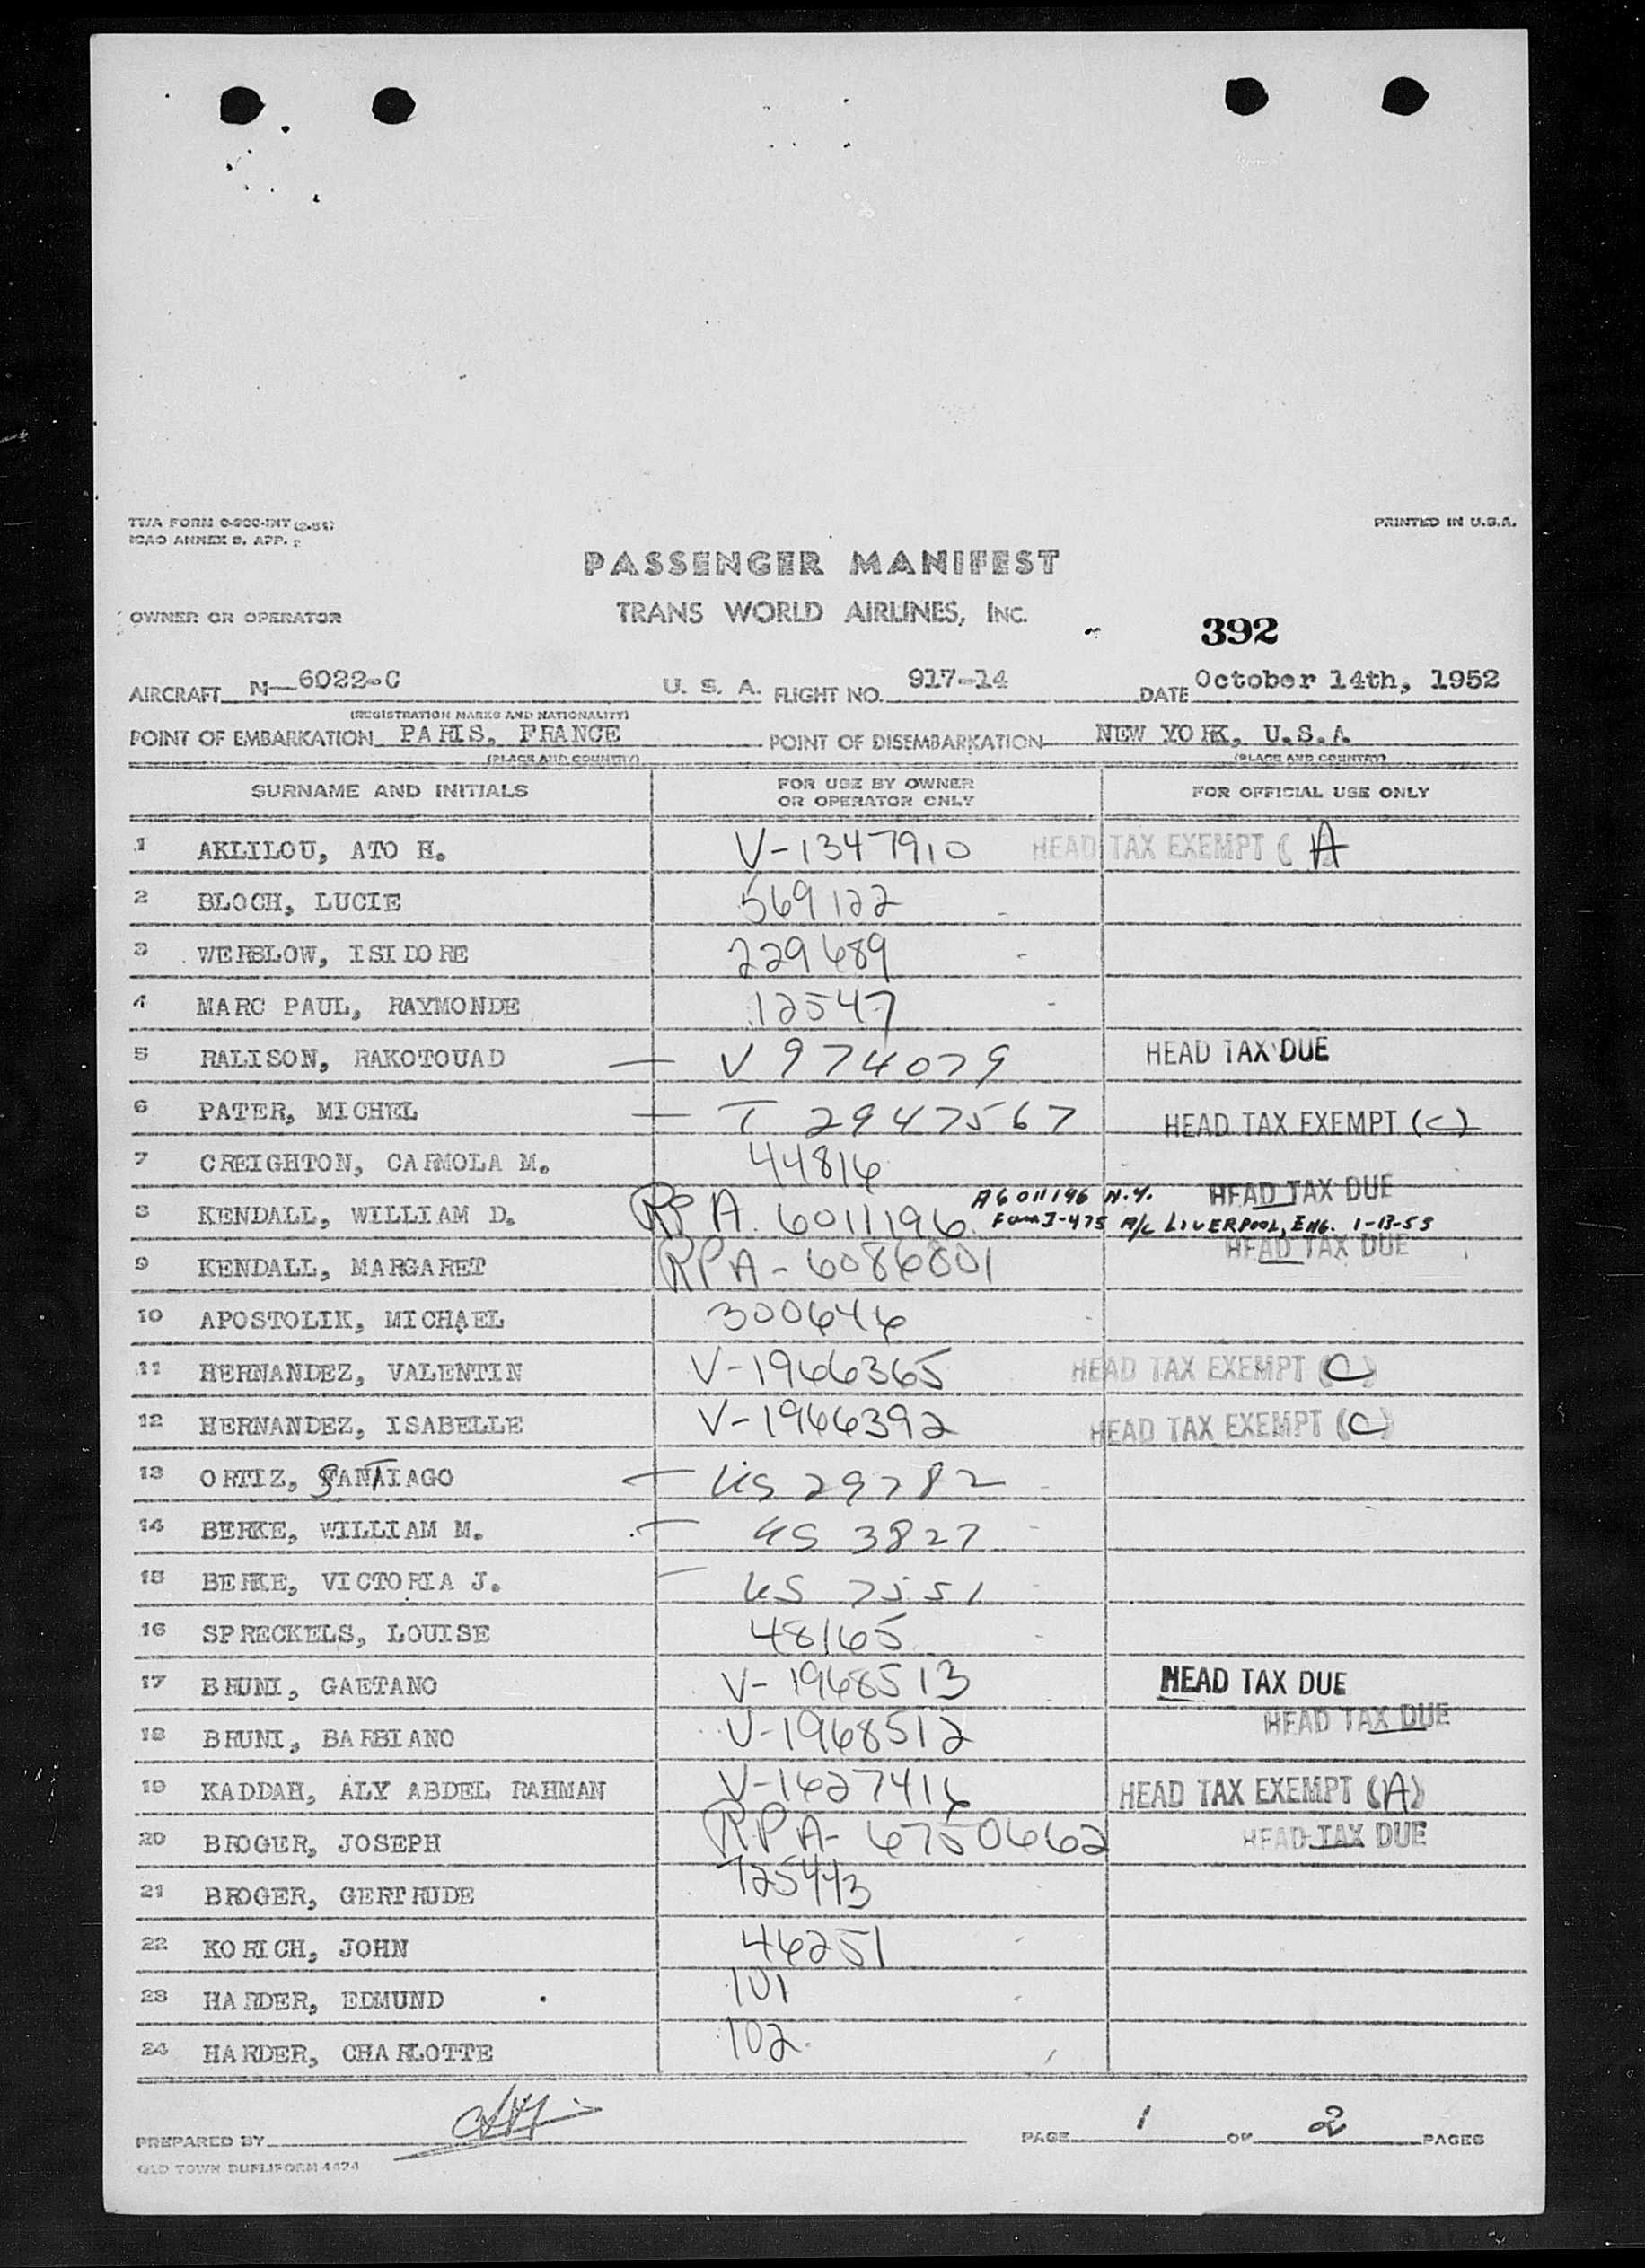 TWA FORM O-900-INT (2-51)
ICAO ANNEX 9, APP.
PRINTED IN U.S.A.
PASSENGER MANIFEST
OWNER OR OPERATOR
TRANS WORLD AIRLINES, INC.
392
AIRCRAFT N—6022-C U. S. A. FLIGHT NO. 917-14 DATE October 14th, 1952
(REGISTRATION MARKS AND NATIONALITY)
POINT OF EMBARKATION PARIS, FRANCE POINT OF DISEMBARKATION NEW YORK, U.S.A.
(PLACE AND COUNTRY) (PLACE AND COUNTRY)
SURNAME AND INITIALS FOR USE BY OWNER OR OPERATOR ONLY FOR OFFICIAL USE ONLY
1 AKLILOU, ATO H. V-1347910 HEAD TAX EXEMPT ( A
2 BLOCH, LUCIE 569122
3 WERBLOW, ISIDORE 229689
4 MARC PAUL, RAYMONDE 12547
5 RALISON, RAKOTOUAD — V 974079 HEAD TAX DUE
6 PATER, MICHEL — T 2947567 HEAD TAX EXEMPT (C)
7 CREIGHTON, CARMOLA M. 44816
A6011196 N.Y. HEAD TAX DUE
8 KENDALL, WILLIAM D. RPA. 6011196 Form I-475 A/C LIVERPOOL, ENG. 1-13-53
9 KENDALL, MARGARET RPA-6086801 HEAD TAX DUE
10 APOSTOLIK, MICHAEL 300646
11 HERNANDEZ, VALENTIN V-1966365 HEAD TAX EXEMPT (C)
12 HERNANDEZ, ISABELLE V-1966392 HEAD TAX EXEMPT (C)
13 ORTIZ, SANTIAGO — US 29782
14 BERKE, WILLIAM M. — US 3827
15 BERKE, VICTORIA J. — US 7551
16 SPRECKELS, LOUISE 48165
17 BRUNI, GAETANO V-1968513 HEAD TAX DUE
18 BRUNI, BARBIANO V-1968512 HEAD TAX DUE
19 KADDAH, ALY ABDEL RAHMAN V-1627416 HEAD TAX EXEMPT (A)
20 BROGER, JOSEPH RPA-6750662 HEAD TAX DUE
21 BROGER, GERTRUDE 725443
22 KORICH, JOHN 46251
23 HARDER, EDMUND 101
24 HARDER, CHARLOTTE 102
PREPARED BY PAGE 1 OF 2 PAGES
OLD TOWN DUPLIFORM 4474